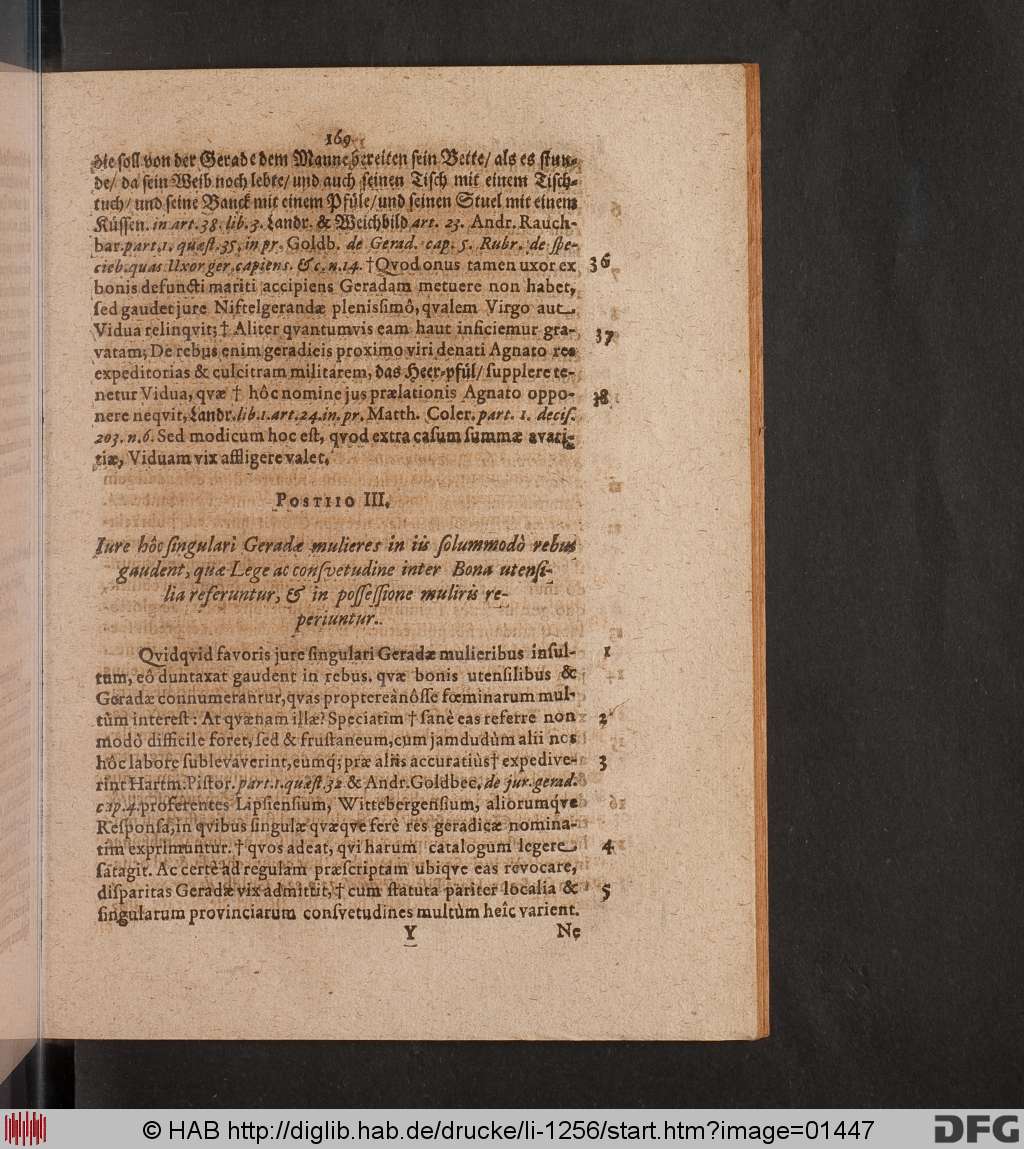 169
die soll von der Gerade dem Manne bereiten sein Bette/ als es stun-
de/ da sein Weib noch lebte/ und auch seinen Tisch mit einem Tisch-
tuch/ und seine Banck mit einem Pfüle/ und seinen Stuel mit einem
Küssen. in art. 38. lib. 3. Landr. & Weichbild art. 23. Andr. Rauch-
bar. part. 1. quæst. 35. in pr. Goldb. de Gerad. cap. 5. Rubr. de spe-
cieb. quas Uxor ger. capiens. & c. n. 14. † Qvod onus tamen uxor ex 36
bonis defuncti mariti accipiens Geradam metuere non habet,
sed gaudet jure Niftelgerandæ plenissimô, qvalem Virgo aut
Vidua relinqvit; † Aliter qvantumvis eam haut inficiemur gra- 37
vatam; De rebus enim geradicis proximo viri denati Agnato res
expeditorias & culcitram militarem, das Heer-pfül/ supplere te-
netur Vidua, qvæ † hôc nomine jus prælationis Agnato oppo- 38
nere neqvit, Landr. lib. 1. art. 24. in. pr. Matth. Coler. part. 1. decis.
203. n. 6. Sed modicum hoc est, qvod extra casum summæ avari-
tiæ, Viduam vix affligere valet.
POSTIIO III.
Iure hôc singulari Geradæ mulieres in iis solummodò rebus
gaudent, quæ Lege ac consvetudine inter Bona utensi-
lia referuntur, & in possessione muliris re-
periuntur..
Qvidqvid favoris jure singulari Geradæ mulieribus insul- 1
tum, eô duntaxat gaudent in rebus. qvæ bonis utensilibus &
Geradæ connumerantur, qvas proptereà nôsse fœminarum mul-
tùm interest: At qvænam illæ? Speciatim † sanè eas referre non 2
modò difficile foret, sed & frustaneum, cum jamdudùm alii nos
hôc labore sublevaverint, eumq; præ aliis accuratiùs † expedive- 3
rint Hartm. Pistor. part. 1. quæst. 32 & Andr. Goldbec. de jur. gerad.
cap. 4. proferentes Lipsiensium, Wittebergensium, aliorumqve
Responsa, in qvibus singulæ qvæqve ferè res geradicæ nomina-
tim exprimuntur. † qvos adeat, qvi harum catalogum legere 4
satagit. Ac certè ad regulam præscriptam ubiqve eas revocare,
disparitas Geradæ vix admittit, † cum statuta pariter localia & 5
singularum provinciarum consvetudines multùm heîc varient.
Y Ne
© HAB http://diglib.hab.de/drucke/li-1256/start.htm?image=01447
DFG